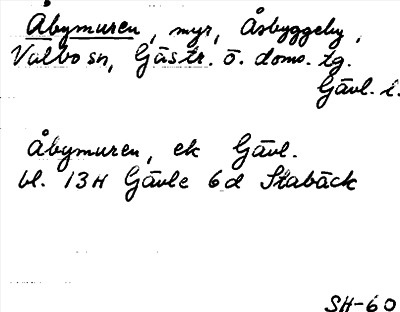 Åbymuren, myr, Åsbyggeby,
Valbo sn, Gästr. ö. doms. tg.
Gävl. l.
Åbymuren, ek Gävl.
bl. 13H Gävle 6d Stabäck
SH-60